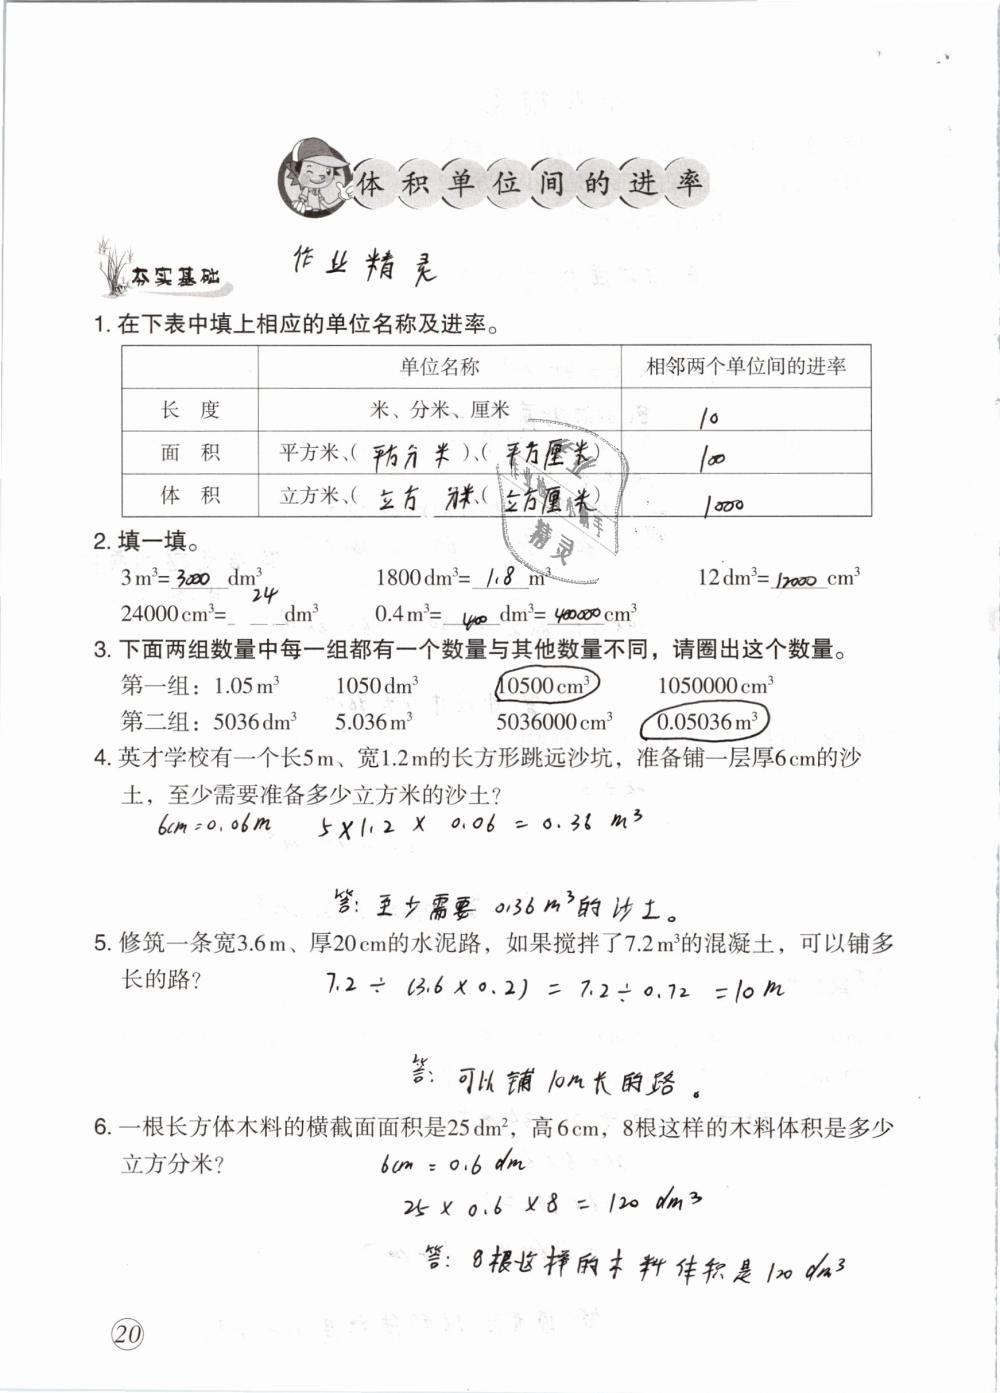 体积单位间的进率
作业精灵
夯实基础
1. 在下表中填上相应的单位名称及进率。
单位名称 相邻两个单位间的进率
长 度 米、分米、厘米 10
面 积 平方米、( 平方分米 )、( 平方厘米 ) 100
体 积 立方米、( 立方分米 )、( 立方厘米 ) 1000
2. 填一填。
3m³=3000dm³ 1800dm³=1.8m³ 12dm³=12000cm³
24000cm³=24dm³ 0.4m³=400dm³=400000cm³
3. 下面两组数量中每一组都有一个数量与其他数量不同，请圈出这个数量。
第一组：1.05m³ 1050dm³ 10500cm³ 1050000cm³
第二组：5036dm³ 5.036m³ 5036000cm³ 0.05036m³
4. 英才学校有一个长5m、宽1.2m的长方形跳远沙坑，准备铺一层厚6cm的沙
土，至少需要准备多少立方米的沙土？
6cm=0.06m 5×1.2×0.06=0.36m³
答：至少需要0.36m³的沙土。
5. 修筑一条宽3.6m、厚20cm的水泥路，如果搅拌了7.2m³的混凝土，可以铺多
长的路？ 7.2÷(3.6×0.2)=7.2÷0.72=10m
答：可以铺10m长的路。
6. 一根长方体木料的横截面面积是25dm²，高6cm，8根这样的木料体积是多少
立方分米？ 6cm=0.6dm
25×0.6×8=120dm³
答：8根这样的木料体积是120dm³
20